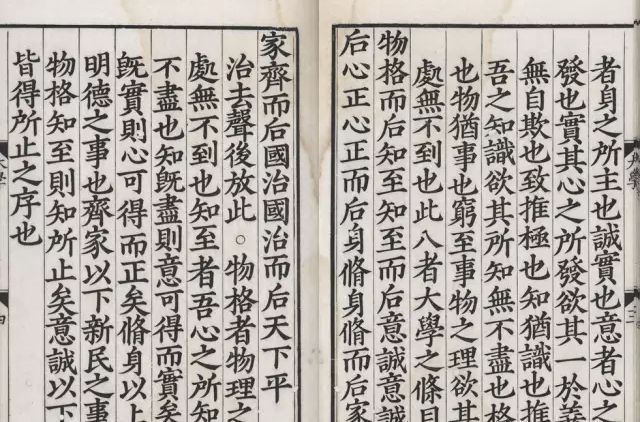 者身之所主也誠實也意者心之
發也實其心之所發欲其一於善
無自欺也致推極也知猶識也推
吾之知識欲其所知無不盡也格
也物猶事也窮至事物之理欲其
處無不到也此八者大學之條目
物格而后知至知至而后意誠意誠
后心正心正而后身脩身脩而后家
家齊而后國治國治而后天下平
治去聲後放此○物格者物理之
處無不到也知至者吾心之所知
不盡也知旣盡則意可得而實矣
旣實則心可得而正矣脩身以上
明德之事也齊家以下新民之事
物格知至則知所止矣意誠以下
皆得所止之序也